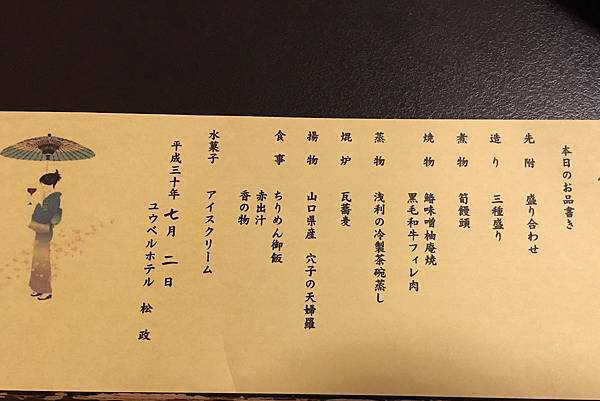 本日のお品書き
先附 盛り合わせ
造り 三種盛り
煮物 筍饅頭
焼物 鰆味噌柚庵焼
黒毛和牛フィレ肉
蒸物 浅利の冷製茶碗蒸し
焜炉 瓦蕎麦
揚物 山口県産 穴子の天婦羅
食事 ちりめん御飯
赤出汁
香の物
水菓子 アイスクリーム
平成三十年 七月 二日
ユウベルホテル 松政